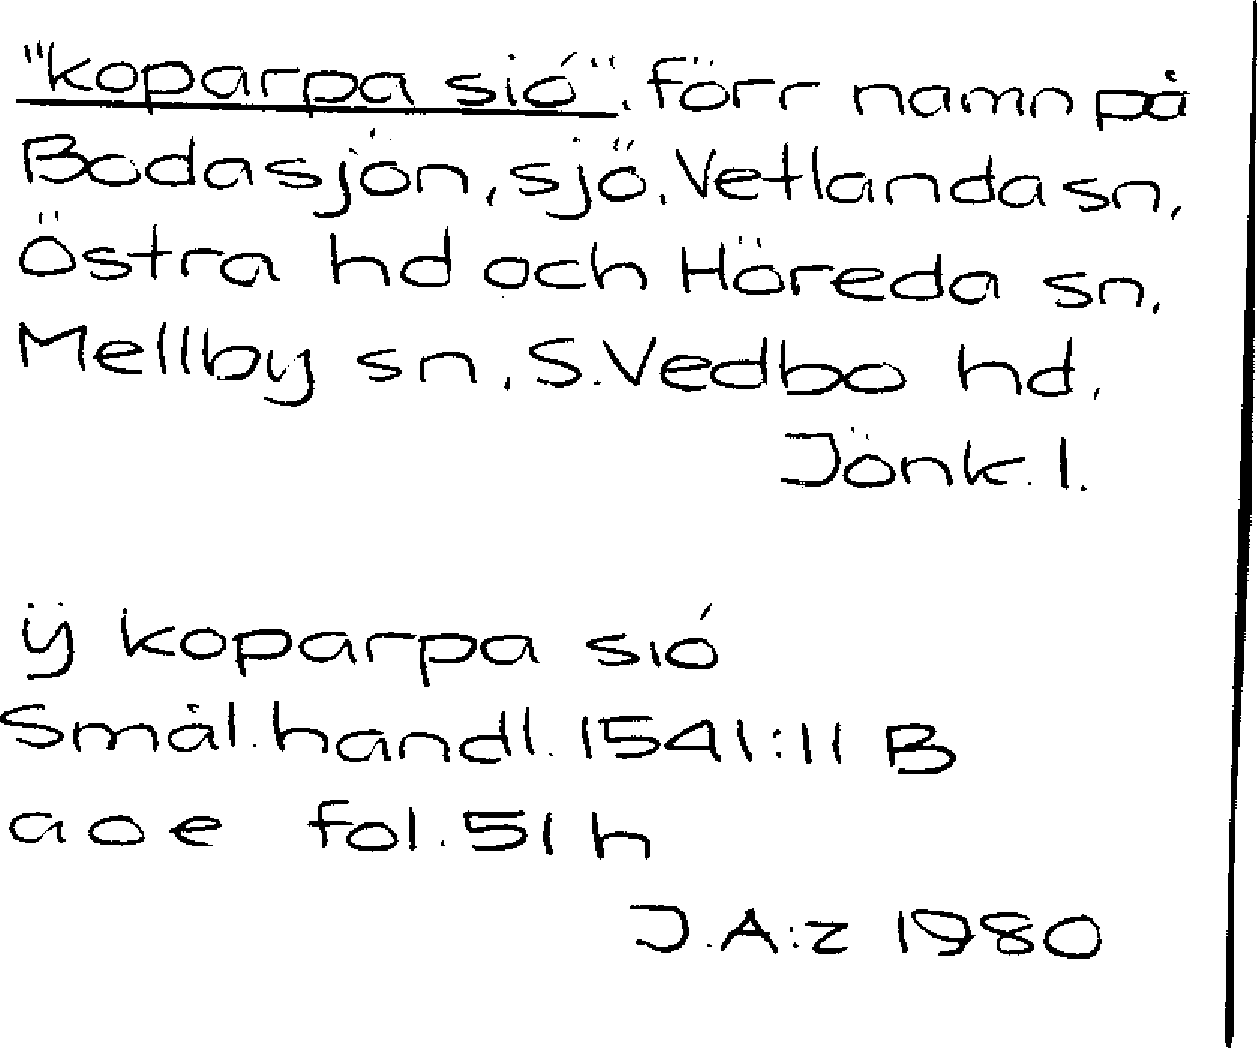 "koparpa sió". förr namn på
Bodasjön, sjö. Vetlanda sn,
Östra hd och Höreda sn,
Mellby sn, S.Vedbo hd,
Jönk. l.
ÿ koparpa sió
Smål. handl. 1541:11 B
a o e fol. 51 h
J.A:z 1980